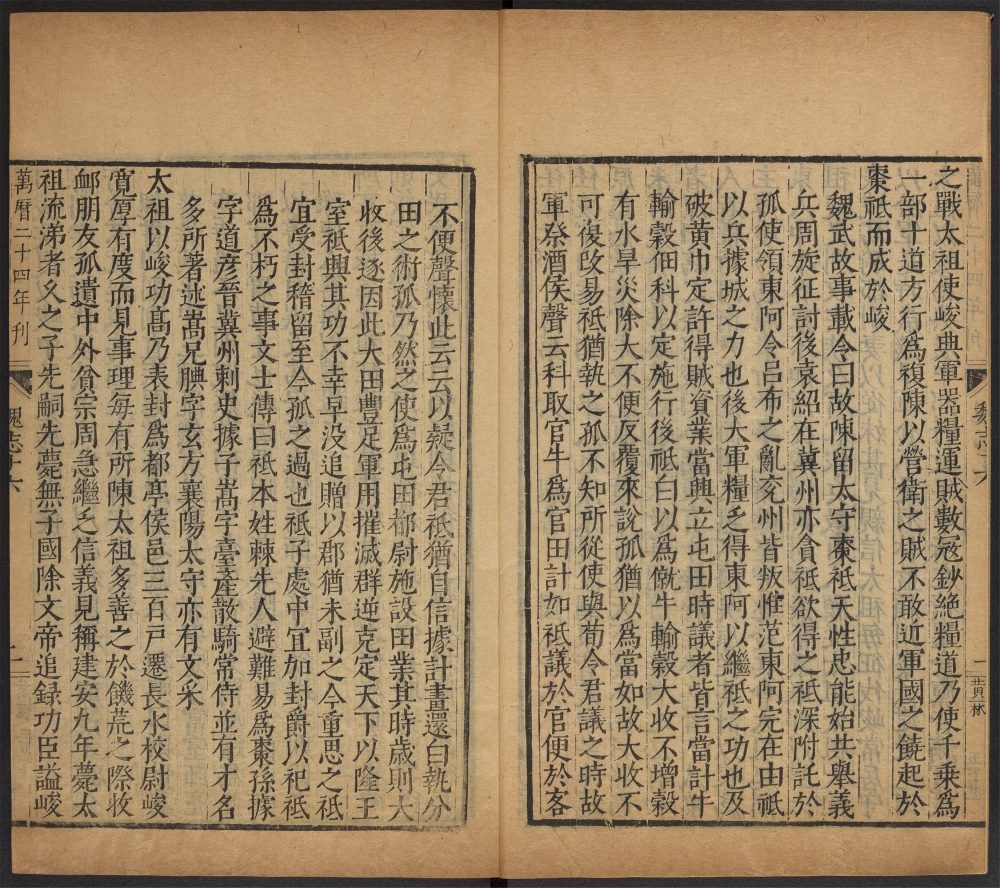 之戰太祖使峻典軍器糧運賊數寇鈔絕糧道乃使千乘爲
一部十道方行爲複陳以營衛之賊不敢近軍國之饒起於
棗祗而成於峻
魏武故事載令曰故陳留太守棗祗天性忠能始共舉義
兵周旋征討後袁紹在冀州亦貪祗欲得之祗深附託於
孤使領東阿令呂布之亂兖州皆叛惟范東阿完在由祗
以兵據城之力也後大軍糧乏得東阿以繼祗之功也及
破黃巾定許得賊資業當興立屯田時議者皆言當計牛
輸穀佃科以定施行後祗白以爲僦牛輸穀大收不增穀
有水旱災除大不便反覆來說孤猶以爲當如故大收不
可復改易祗猶執之孤不知所從使與荀令君議之時故
軍祭酒侯聲云科取官牛爲官田計如祗議於官便於客
魏志十六
二
不便聲懷此云云以疑令君祗猶自信據計畫還白執分
田之術孤乃然之使爲屯田都尉施設田業其時歲則大
收後遂因此大田豐足軍用摧滅群逆克定天下以隆王
室祗興其功不幸早没追贈以郡猶未副之今重思之祗
宜受封稽留至今孤之過也祗子處中宜加封爵以祀祗
爲不朽之事文士傳曰祗本姓棘先人避難易爲棗孫據
字道彥晉冀州刺史據子嵩字臺產散騎常侍並有才名
多所著述嵩兄腆字玄方襄陽太守亦有文采
太祖以峻功高乃表封爲都亭侯邑三百戸遷長水校尉峻
寬厚有度而見事理每有所陳太祖多善之於饑荒之際收
䘏朋友孤遺中外貧宗周急繼乏信義見稱建安九年薨太
祖流涕者久之子先嗣先薨無子國除文帝追録功臣謚峻
萬曆二十四年刊
魏志十六
二